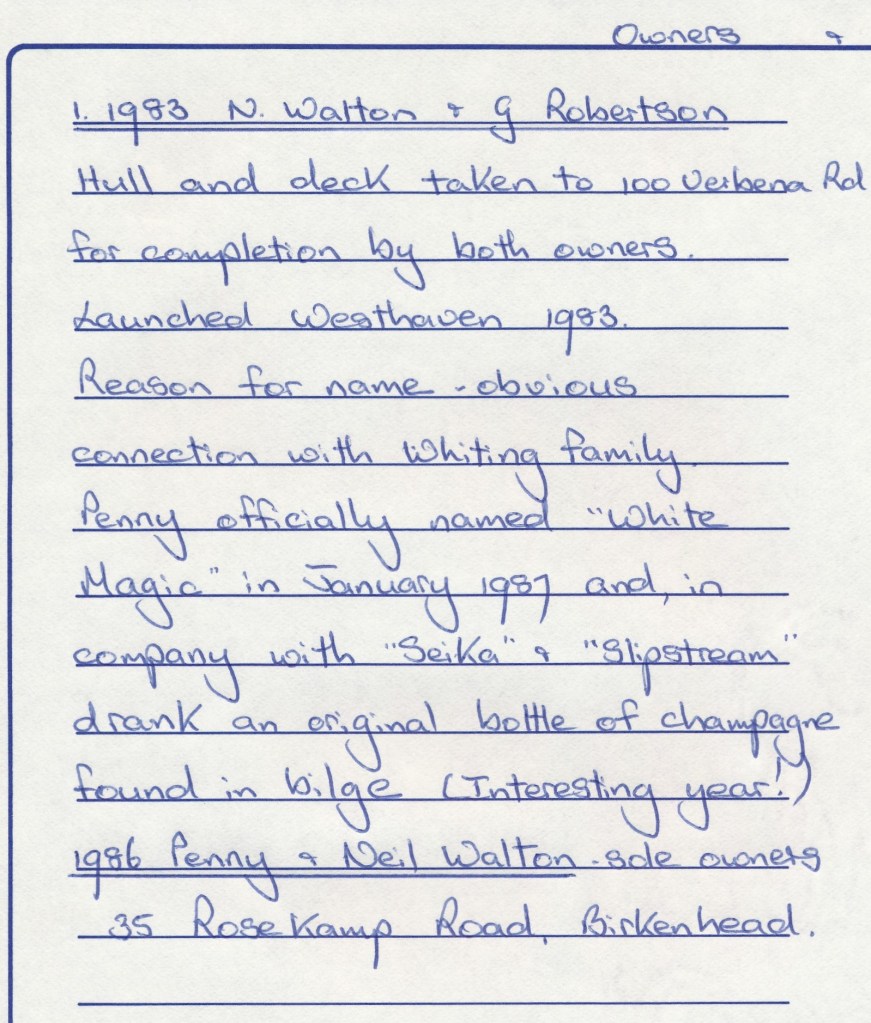 Owners &
1. 1983 N. Walton & G Robertson
Hull and deck taken to 100 Verbena Rd
for completion by both owners.
Launched Westhaven 1983.
Reason for name - obvious
connection with Whiting family.
Penny officially named "White
Magic" in January 1987 and, in
company with "Seika" & "Slipstream"
drank an original bottle of champagne
found in bilge (Interesting year!)
1986 Penny & Neil Walton - sole owners
35 Rosekamp Road, Birkenhead.